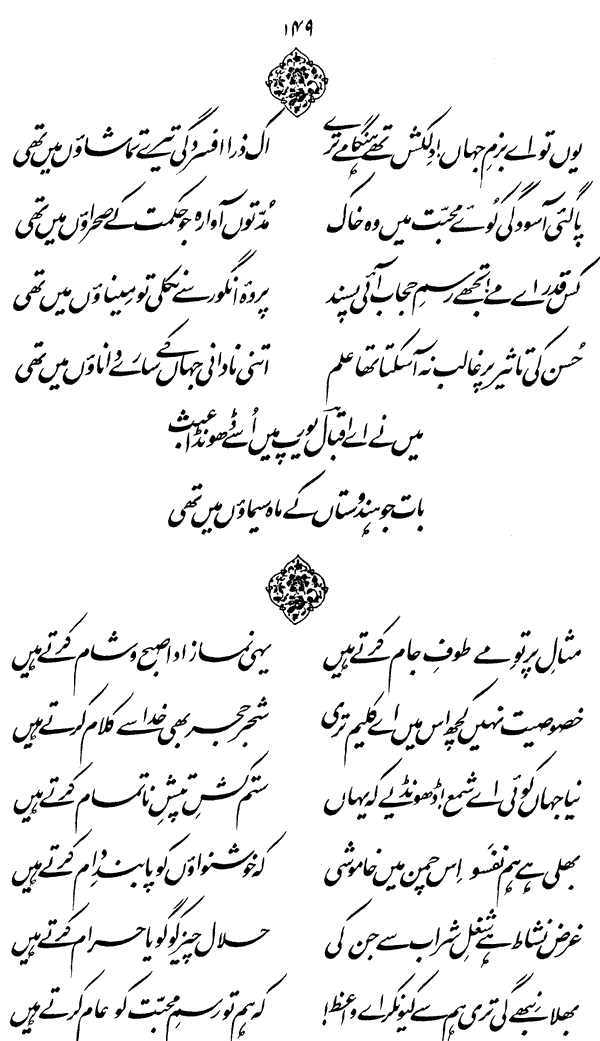 ۱۴۹
یوں تو اے بزمِ جہاں! دلکش تھے ہنگامے ترے اک ذرا افسردگی تیرے تماشاؤں میں تھی
پا گئی آسودگی کُوئے محبّت میں وہ خاک مُدّتوں آوارہ جو حکمت کے صحراؤں میں تھی
کس قدر اے مے! تجھے رسمِ حجاب آئی پسند پردۂ انگور سے نکلی تو مِیناؤں میں تھی
حُسن کی تاثیر پر غالب نہ آ سکتا تھا علم اتنی نادانی جہاں کے سارے داناؤں میں تھی
میں نے اے اقبالؔ یورپ میں اُسے ڈھونڈا عبث
بات جو ہندوستاں کے ماہ سیماؤں میں تھی
مثالِ پرتوِ مے طوفِ جام کرتے ہیں یہی نماز ادا صبح و شام کرتے ہیں
خصوصیت نہیں کچھ اس میں اے کلیم تری شجر حجر بھی خدا سے کلام کرتے ہیں
نیا جہاں کوئی اے شمع! ڈھونڈیے کہ یہاں ستم کشِ تپشِ ناتمام کرتے ہیں
بھلی ہے ہم نفَسو اِس چمن میں خاموشی کہ خوشنواؤں کو پابندِ دام کرتے ہیں
غرض نشاط ہے شغلِ شراب سے جن کی حلال چیز کو گویا حرام کرتے ہیں
بھلا نِبھے گی تری ہم سے کیونکر اے واعظ! کہ ہم تو رسمِ محبّت کو عام کرتے ہیں